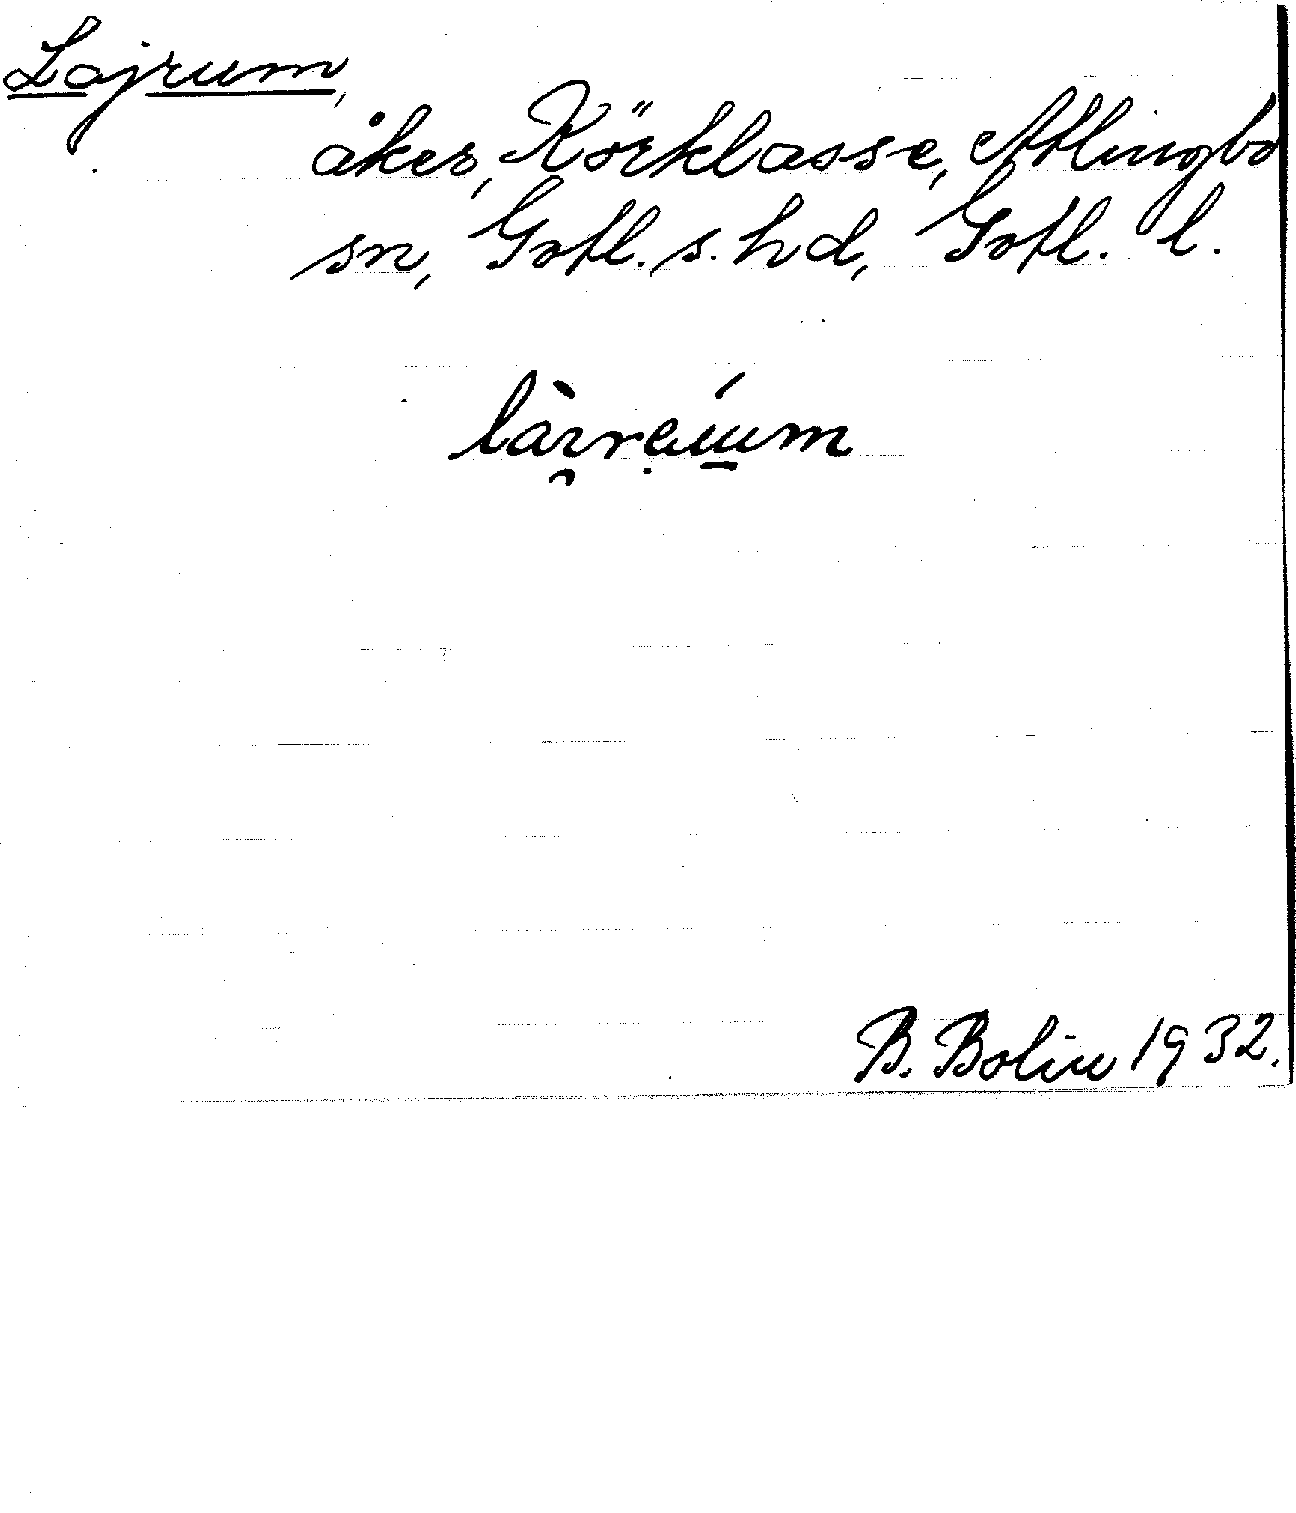 Lajrum,
åker, Körklasse, Atlingbo
sn, Gotl. s. hd, Gotl. l.
B. Bolin 1932.